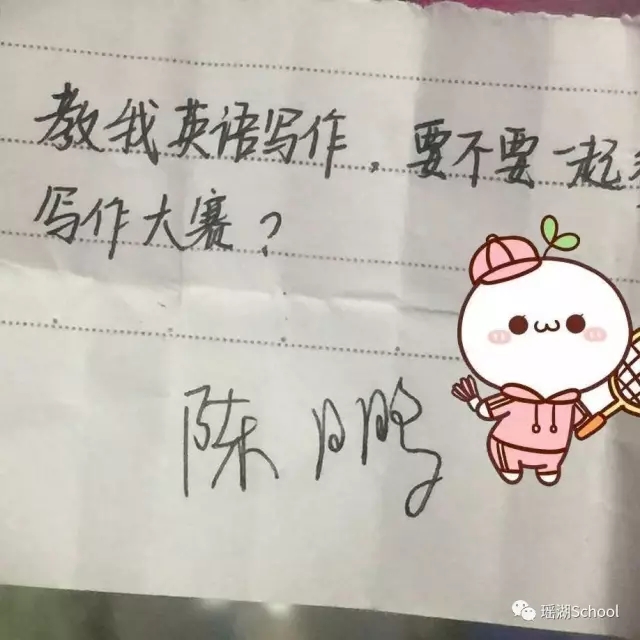 教我英语写作，要不要一起
写作大赛？
陈鹏
瑶湖School